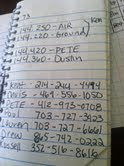 73
144.250 - AIR
144.220 - Ground
Ken
144.420 - PETE
144.360 - Dustin
214-244-4494
469-556-1050
PETE - 412-973-6708
703-727-3123
703-727-6661
865-742-0222
352-516-8616